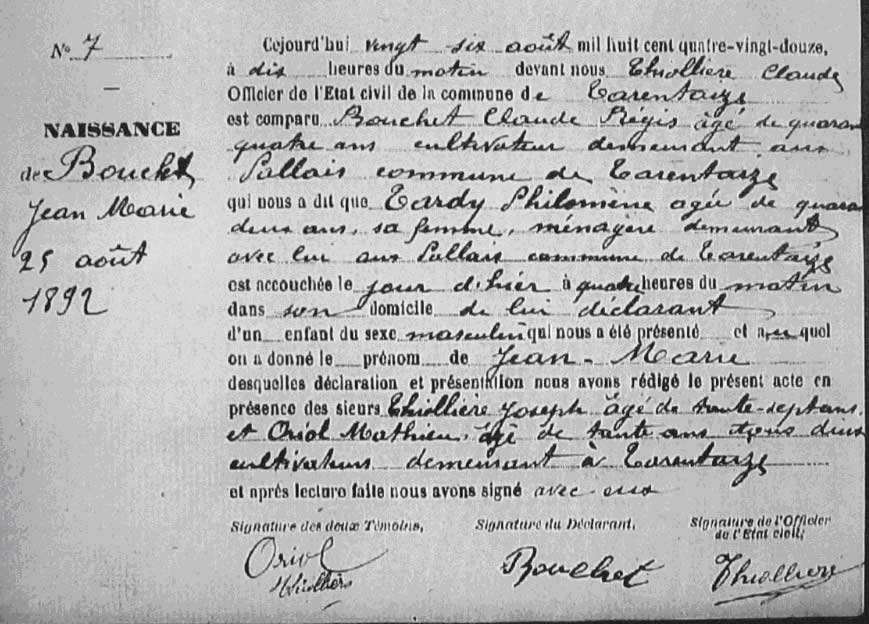 N° 7
NAISSANCE
de Bouchet
Jean Marie
25 août
1892
Cejourd'hui vingt six août mil huit cent quatre-vingt-douze,
à dix heures du matin devant nous Thiollière Claude
Officier de l'Etat civil de la commune de Tarentaize
est comparu Bouchet Claude Régis âgé de quaran
quatre ans cultivateur demeurant aux
Pallais commune de Tarentaize
qui nous a dit que Tardy Philomène agée de quaran
deux ans, sa femme, ménagère demeurant
avec lui aux Pallais commune de Tarentaize
est accouchée le jour d'hier à quatre heures du matin
dans son domicile de lui déclarant
d'un enfant du sexe masculin qui nous a été présenté et auquel
on a donné le prénom de Jean-Marie
desquelles déclaration et présentation nous avons rédigé le présent acte en
présence des sieurs Thiollière Joseph âgé de trente-sept ans,
et Oriol Mathieu, âgé de trente ans tous deux
cultivateurs demeurant à Tarentaize
et après lecture faite nous avons signé avec eux
Signature des deux Témoins,
Signature du Déclarant,
Signature de l'Officier
de l'Etat civil;
Oriol
Thiollière
Bouchet
Thiollière